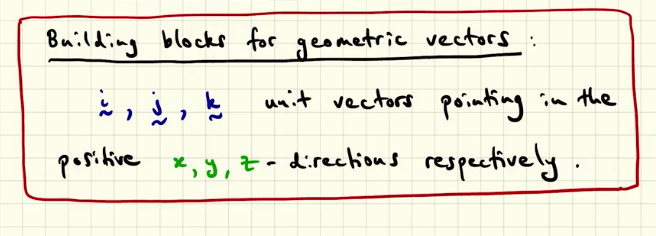 Building blocks for geometric vectors :
i, j, k unit vectors pointing in the
positive x, y, z - directions respectively.